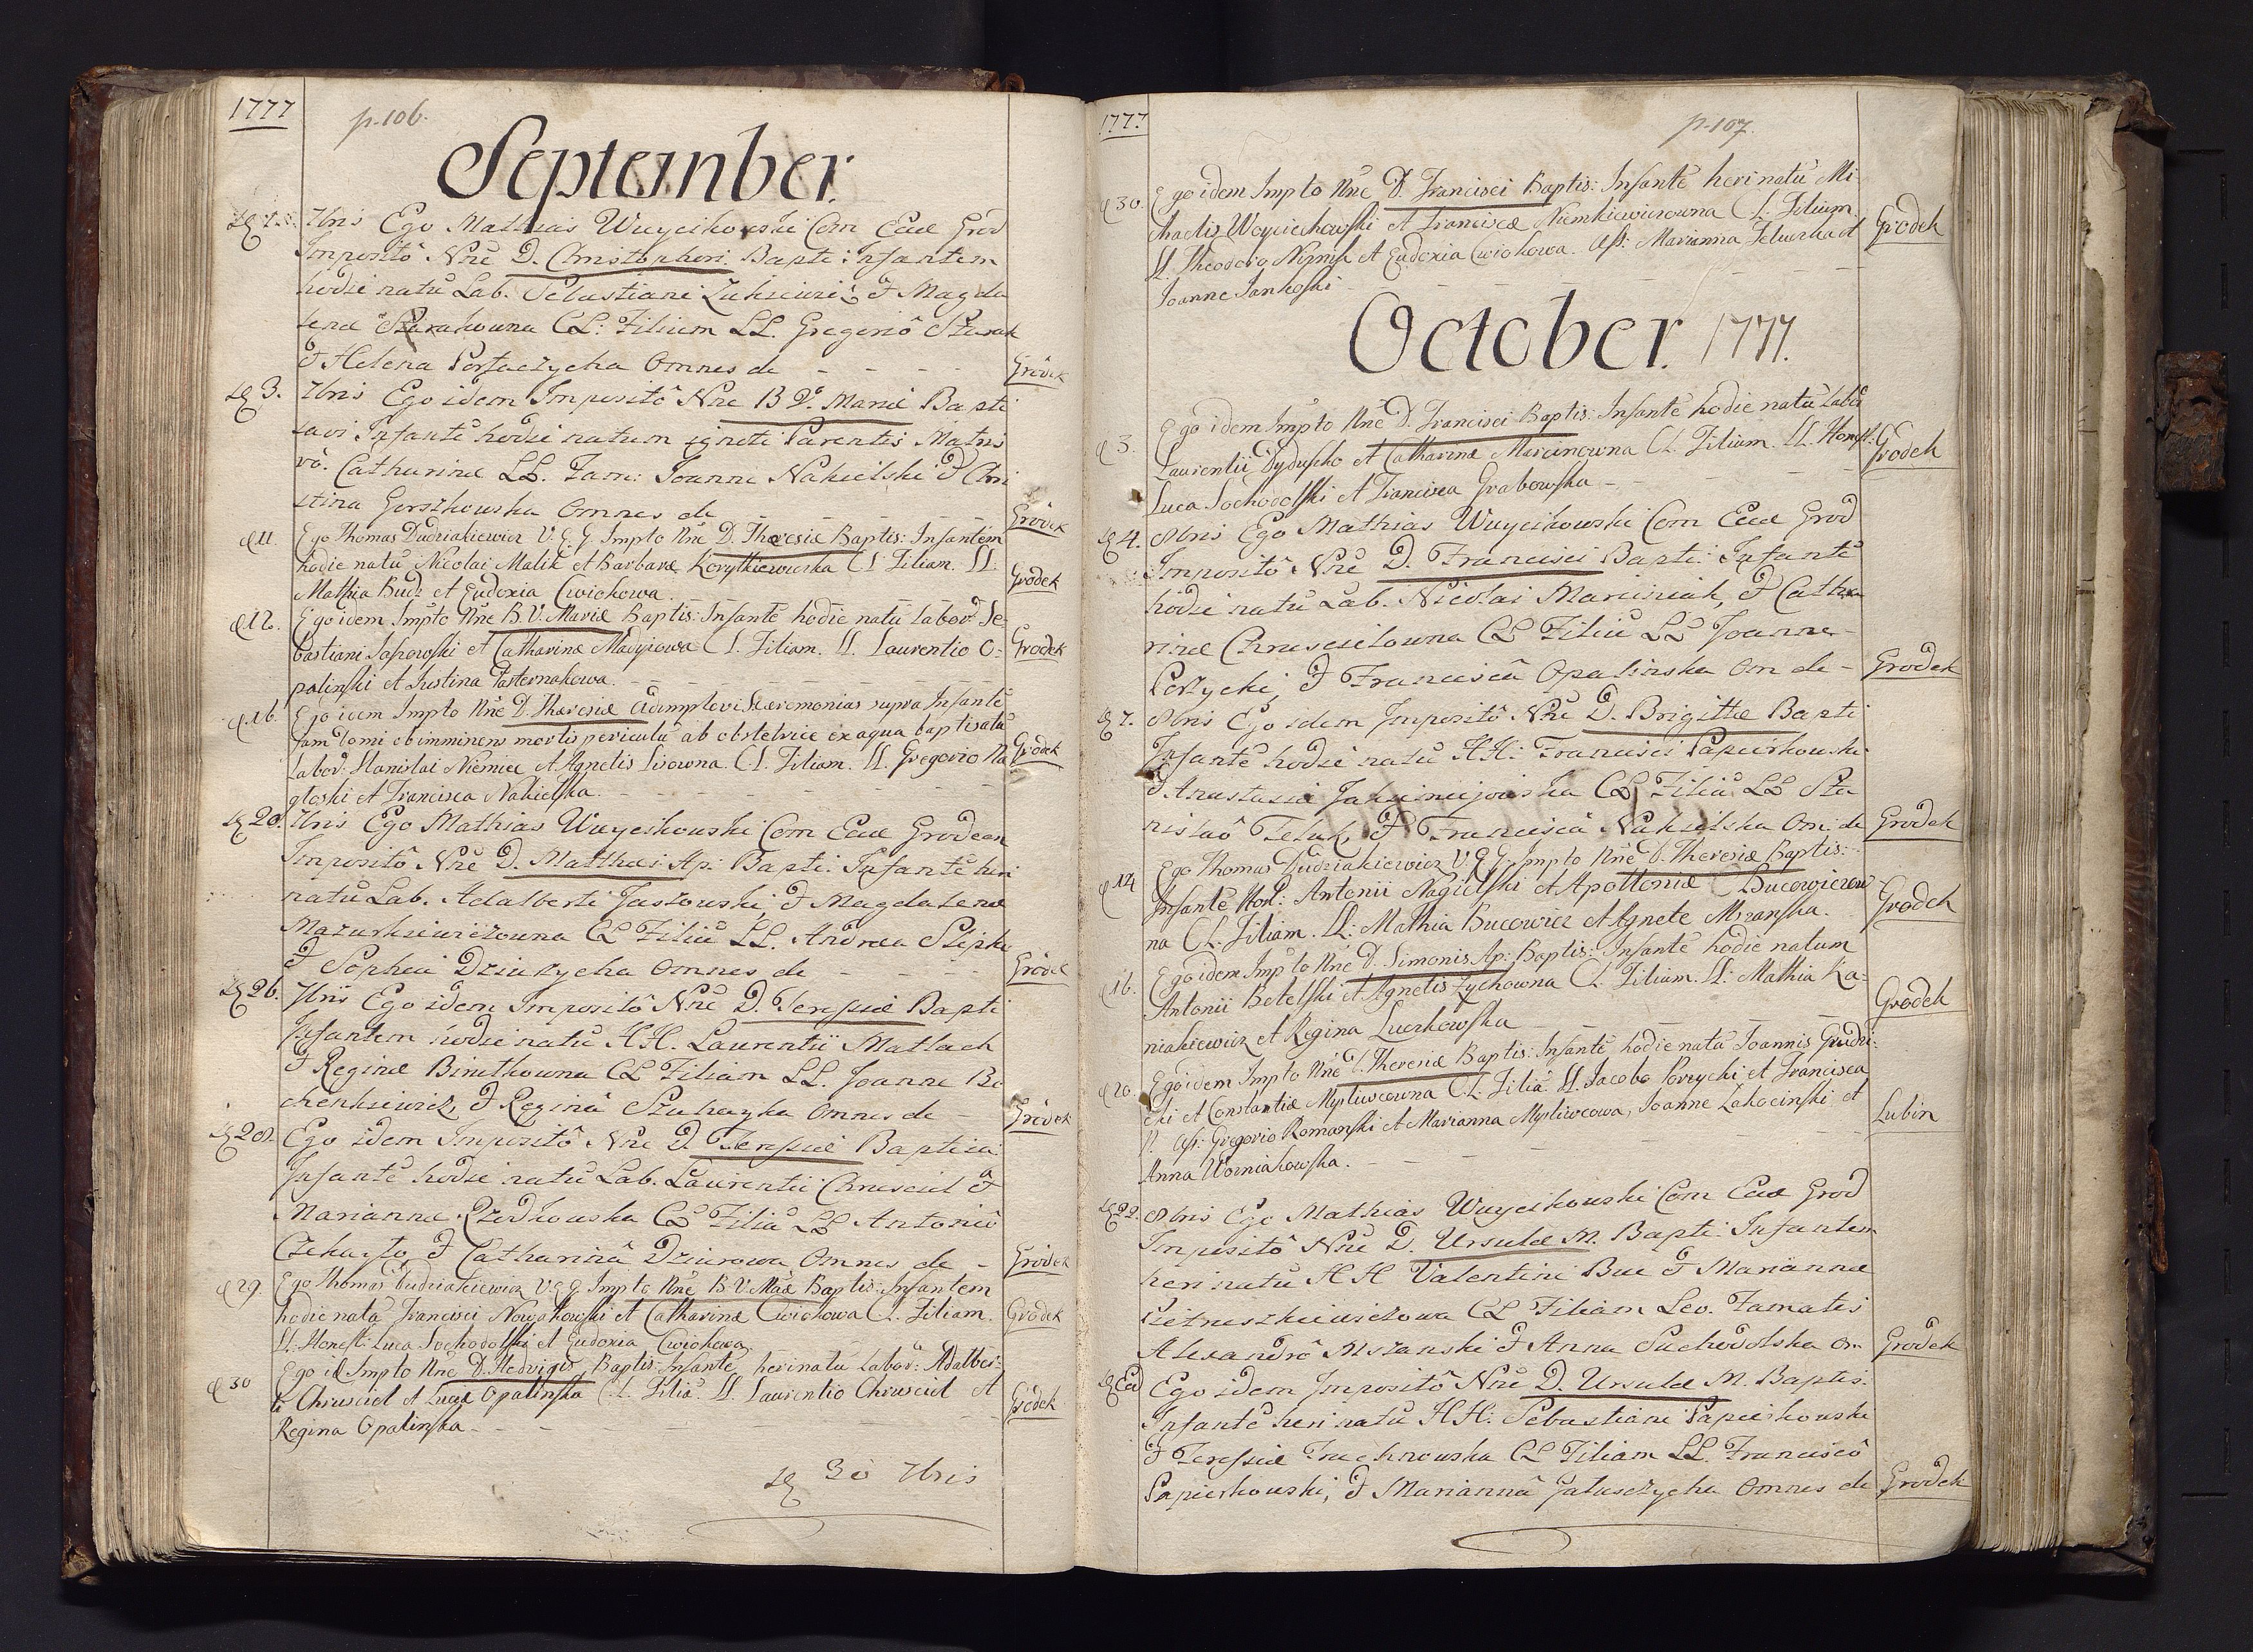 1777
p. 106.
September.
1. 7bris Ego Mathias Wuycikowski Com Eccl Grod
Impositô Nñe D. Christophori Bapti: Infantem
hodie natũ Lab. Sebastiani Zukiewicz et Magda
lenæ Szarakowna CL: Filium LL. Gregoriô Szarak
et Helena Portaczycha Omnes de - - - - Grodek
3. 7bris Ego idem Impositô Nñe B V. Mariæ Bapti
savi Infantẽ hodie natum igneti Parentis Matris
vô. Catharinæ LL. Fam: Joanne Nakielski et Chri
stina Gorzkowska Omnes de - - - Grodek
d 11. Ego Thomas Dudziakiewicz V. G. G. Impto Nñe D. Theresiæ Baptis: Infantem
hodie natũ Nicolai Malik et Barbaræ Korytkiewiczka CL Filiam. LL.
Mathia Budz et Eudoxia Cwiekowa. Grodek
d 12. Ego idem Impto Nñe B. V. Mariæ Baptis: Infantẽ hodie natũ Labor. Se-
bastiani Sapowski et Catharinæ Madyiowa CL. Filiam. LL. Laurentio O- Grodek
palinski et Justina Pasternakowa. - - -
d 16. Ego idem Impto Nñe D. Theresiæ adimplevi Cæremonias supra Infantẽ
Jam domi ob imminens mortis periculũ ab obstetrice ex aqua baptisatũ
Labor: Stanislai Niemiec et Agnetis Lisowna. CL. Filiam. LL. Gregorio Na Grodek
gloski et Francisca Nakielska. - - -
20. 7bris Ego Mathias Wuycikowski Com Eccl Grodecen
Impositô Nñe D. Matthæi Ap: Bapti: Infantẽ heri
natũ Lab. Adalberti Jastowski et Magdalenæ
Mazurkiewiczowna CL Filiũ LL. Andrea Slipko
et Sophia Dziurzycha Omnes de - - - - Grodek
26. 7bris Ego idem Impositô Nñe D. Teressiæ Bapti
Infantem hodie natũ HH. Laurentii Matlach
et Reginæ Binitkowna CL Filiam LL. Joanne Be
chenkiewicz, et Reginâ Szuhayka Omnes de - Grodek
28. Ego idem Impositô Nñe D. Teressiæ Baptisa
Infantẽ hodie natũ Lab. Laurentii Chrusciel et
Mariannæ Rzodkowska CL Filiã LL Antoniô
Czekayło et Catharinâ Dziurowa Omnes de - Grodek
d 29. Ego Thomas Dudziakiewicz V. G. G. Impto Nñe B. V. Mariæ Baptis: Infantem
hodie natã Francisci Nowakowski et Catharinæ Cwiekowa CL. Filiam. Grodek
LL: Honest: Luca Sochodolski et Eudoxia Cwiekowa.
d 30 Ego id Impto Nñe D. Hedvigis Baptis: Infantẽ heri natũ Labor: Adalber-
ti Chrusciel et Luciæ Opalinska CL. Filiã. LL Laurentio Chrusciel et Grodek
Regina Opalinska - - -
30 7bris
1777.
p. 107.
d 30. Ego idem Impto Nñe D. Francisci Baptis: Infantẽ heri natũ Mi-
chaelis Woyciechowski et Franciscæ Niemkiewiczowna CL. Filium. Grodek
LL. Theodoro Nizinsk et Eudoxia Cwiekowa. Ass: Marianna Feluczka et
Joanne Jankoski - - -
October. 1777.
d 3. Ego idem Impto Nñe D. Francisci Baptis: Infantẽ hodie natũ Labor
Laurentii Dyduszko et Catharinæ Marcinowna CL. Filium. LL. Honest: Grodek
Luca Sochodolski et Francisca Grabowska - - -
4. 8bris Ego Mathias Wuycikowski Com Eccl Grod
Impositô Nñe D. Francisci Bapti: Infantẽ
hodie natũ Lab. Nicolai Marciniak, et Catha
rinæ Chruscielowna CL Filiũ LL Joanne
Porzycki, et Franciscâ Opalinska Om de - Grodek
7. 8bris Ego idem Impositô Nñe D. Brigittæ Bapti
Infantẽ hodie natũ HH: Francisci Papierkowski
et Anastasiæ Jakimiejowska CL Filiã LL Sta
nislaô Feluk, et Franciscâ Nakielska Om: de Grodek
d 14 Ego Thomas Dudziakiewicz V. G. G. Impto Nñe D. Theresiæ Baptis:
Infantẽ Hon: Antonii Nagielski et Apolloniæ Bucewiczow Grodek
na CL. Filiam. LL: Mathia Bucewicz et Agnete Mszanska.
d 16. Ego idem Impto Nñe D. Simonis Ap: Baptis: Infantẽ hodie natum
Antonii Betelski et Agnetis Zychowna CL. Filium. LL: Mathia Ka- Grodek
niakiewicz et Regina Luczkowska - - -
d 20. Ego idem Impto Nñe D. Theresiæ Baptis: Infantẽ hodie natã Joannis Grudzi-
cki et Constantiæ Mysliwcowna CL. Filiã. LL. Jacobo Porzycki et Francisca
N. Ass: Gregorio Romanski et Marianna Mysliwcowa, Joanne Zakocinski et Lubin
Anna Worniakowska. - - -
22. 8bris Ego Mathias Wuycikowski Com Eccl Grod
Impositô Nñe D. Ursulæ M. Bapti: Infantem
heri natũ HH Valentini Buc et Mariannæ
Pietruszkiewiczowa CL Filiam Lev. Famatis
Alexandrô Mszanski et Anna Suchodolska Om Grodek
Ead Ego idem Impositô Nñe D. Ursulæ M. Baptis.
Infantẽ heri natũ HH: Sebastiani Papierkowski
et Teressiæ Truchnowska CL Filiam LL. Franciscô
Papierkowski, et Mariannâ Jaluszycka Omnes de Grodek